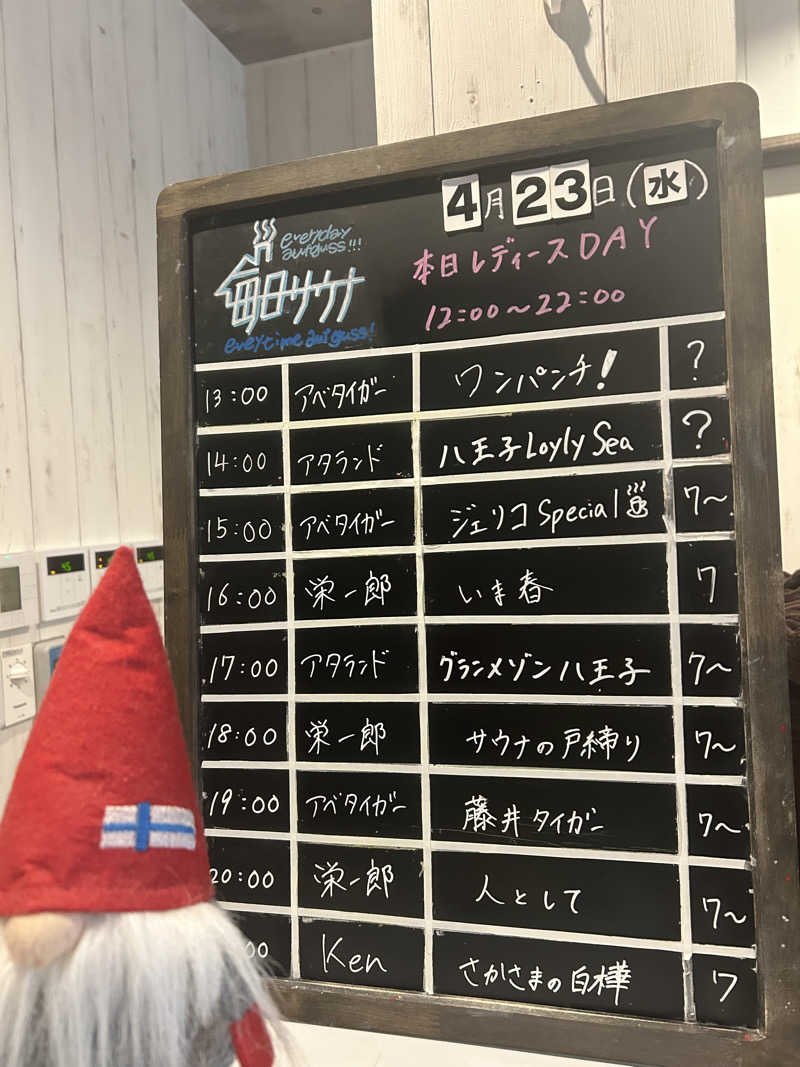 4月23日(水)
everyday
aufguss!!!
毎日サウナ
everytime aufguss!
本日レディースDAY
12:00～22:00
13:00 アベタイガー ワンパンチ! ?
14:00 アタランド 八王子Loyly Sea ?
15:00 アベタイガー ジェリコSpecial 7～
16:00 栄一郎 いま春 7
17:00 アタランド グランメゾン八王子 7～
18:00 栄一郎 サウナの戸締り 7～
19:00 アベタイガー 藤井タイガー 7～
20:00 栄一郎 人として 7～
:00 Ken さかさまの白樺 7
45